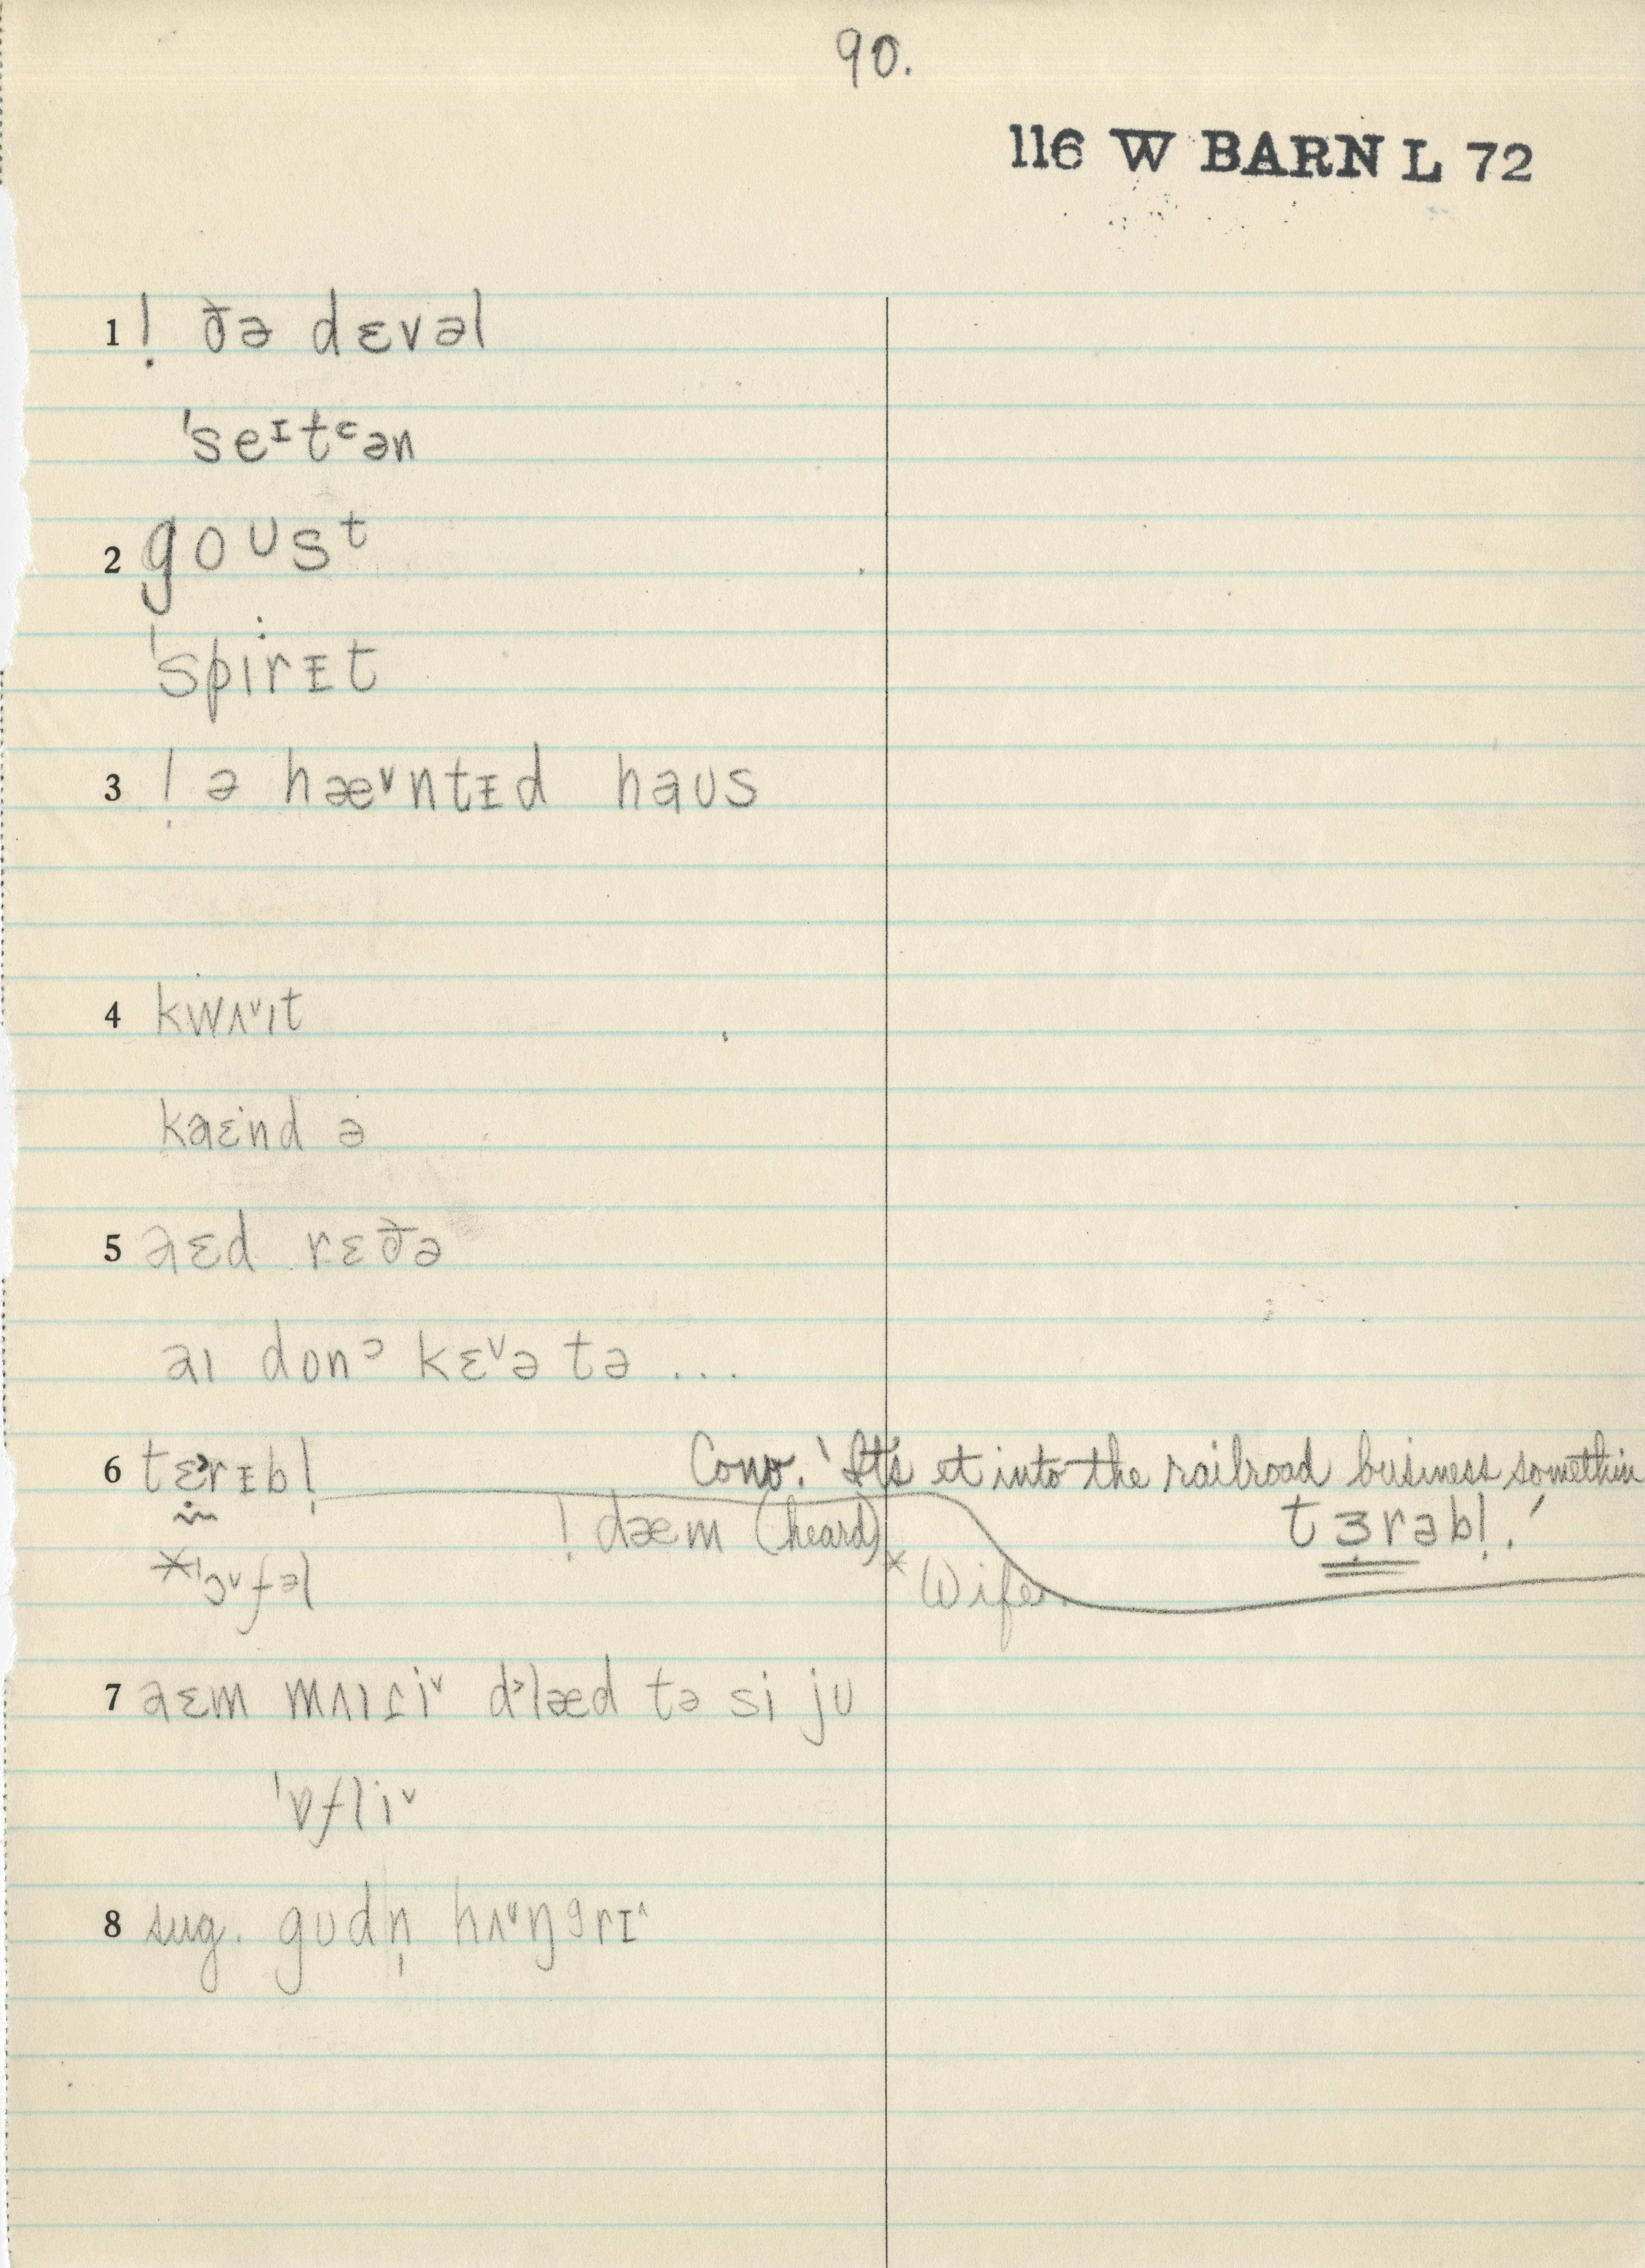 90.
116 W BARN L 72
1 ! ðə dɛvəl
ˈseᶦtᶜən
2 goʊsᵗ
ˈspirɪt
3 ! ə hæᵛntɪd haʊs
4 kwʌᵛɪt
kaɛnd ə
5 aɛd rɛðə
aɪ donᵓ kɛᵛə tə ...
6 tɛrɪbl̩ Conv. 'It's et into the railroad business somethin
! dæm (heard) tɜrəbl̩.'
*ˈɔᵛfəl *Wife.
7 aɛm mʌɪɾiᵛ d˒læd tə si jʊ
ˈɒfliᵛ
8 sug. gʊdn̩ hʌᵛŋgrɪ^